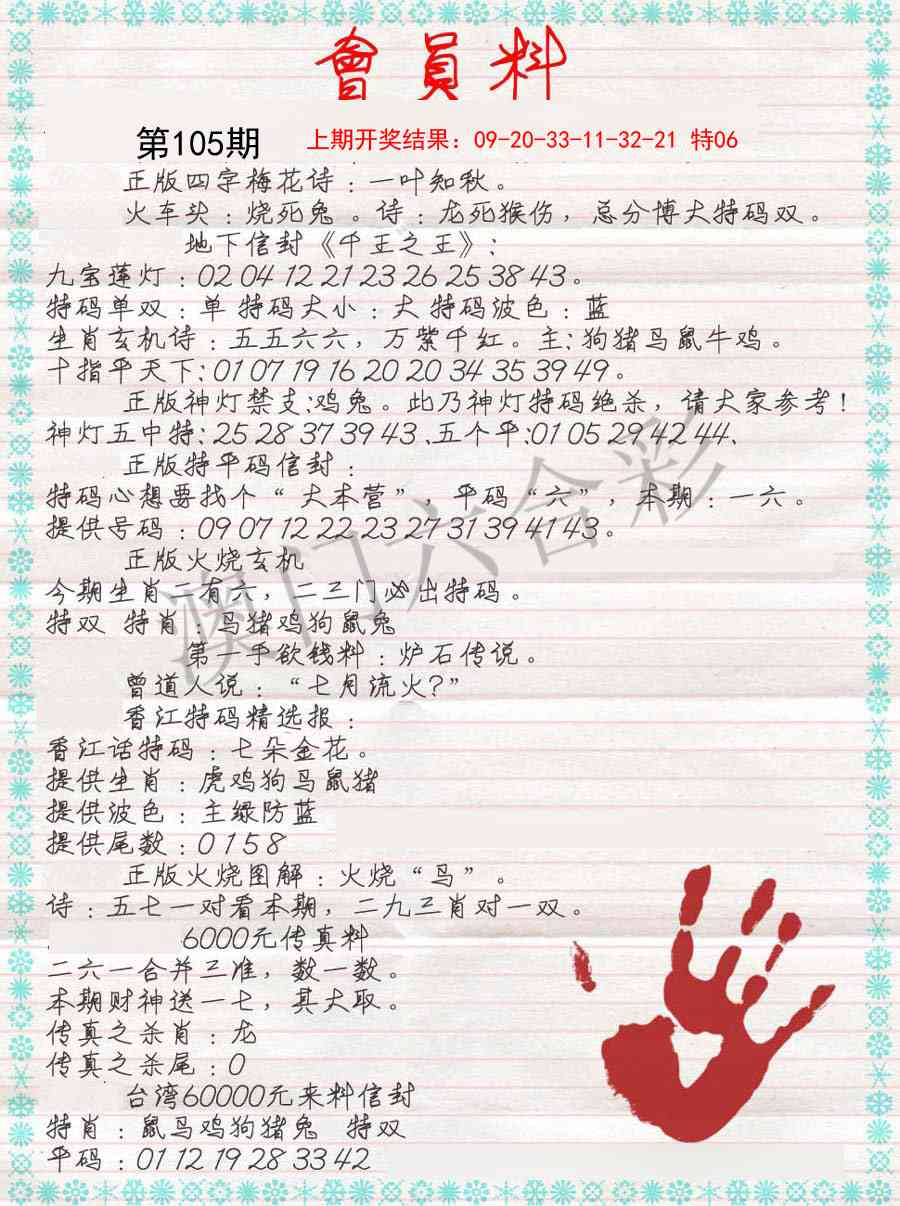 會員料
第105期 上期开奖结果：09-20-33-11-32-21 特06
正版四字梅花诗：一叶知秋。
火车头：烧死兔。诗：龙死猴伤，总分博大特码双。
地下信封《千王之王》：
九宝莲灯：02 04 12 21 23 26 25 38 43。
特码单双：单 特码大小：大 特码波色：蓝
生肖玄机诗：五五六六，万紫千红。主：狗猪马鼠牛鸡。
十指平天下：01 07 19 16 20 20 34 35 39 49。
正版神灯禁支：鸡兔。此乃神灯特码绝杀，请大家参考！
神灯五中特：25 28 37 39 43、五个平：01 05 29 42 44、
正版特平码信封：
特码心想要找个“大本营”，平码“六”，本期：一六。
提供号码：09 07 12 22 23 27 31 39 41 43。
正版火烧玄机
今期生肖二有六，二三门必出特码。
特双 特肖：马猪鸡狗鼠兔
第一手欲钱料：炉石传说。
曾道人说：“七月流火？”
香江特码精选报：
香江话特码：七朵金花。
提供生肖：虎鸡狗马鼠猪
提供波色：主绿防蓝
提供尾数：0 1 5 8
正版火烧图解：火烧“鸟”。
诗：五七一对看本期，二九三肖对一双。
6000元传真料
二六一合并三准，数一数。
本期财神送一七，其大取。
传真之杀肖：龙
传真之杀尾：0
台湾60000元来料信封
特肖：鼠马鸡狗猪兔 特双
平码：01 12 19 28 33 42
澳门六合彩